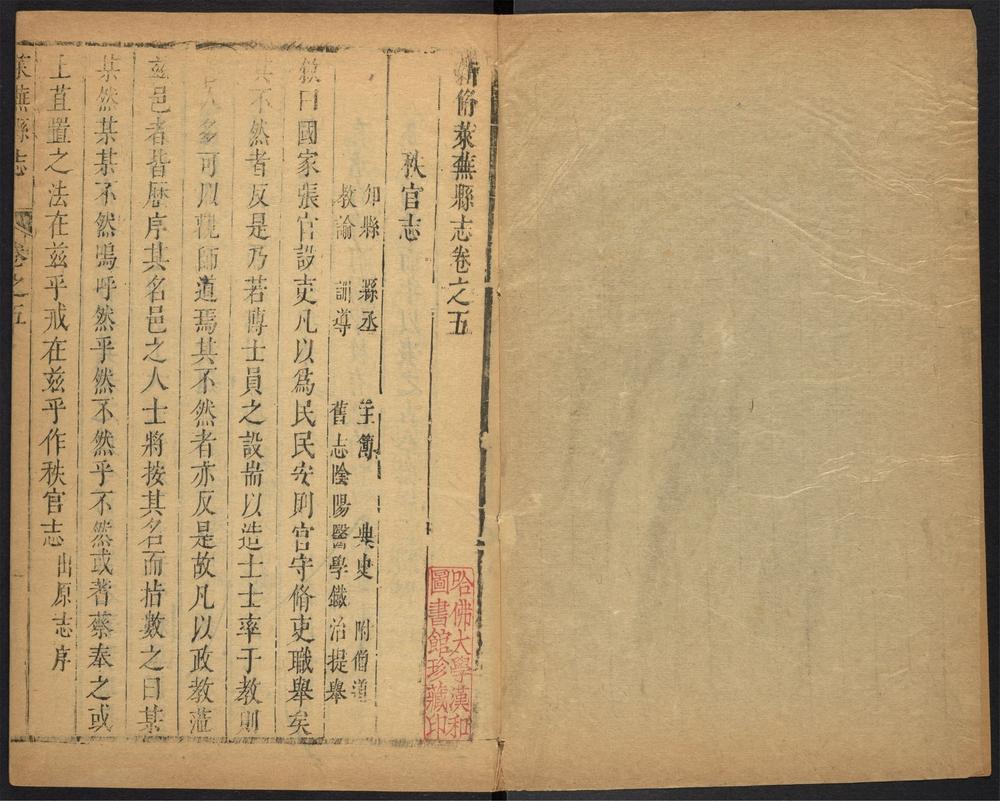 新脩萊蕪縣志卷之五
秩官志
知縣 縣丞 主簿 典史 附僧道
教諭 訓導 舊志陰陽醫學鐵冶提舉
敘曰國家張官設吏凡以爲民民安則官守脩吏職舉矣
其不然者反是乃若博士員之設耑以造士士率于教則
人人多可以覘師道焉其不然者亦反是故凡以政教蒞
茲邑者皆歷序其名邑之人士將按其名而指數之曰某
某然某某不然嗚呼然乎然不然乎不然或蓍蔡奉之或
土苴置之法在茲乎戒在茲乎作秩官志 出原志序
萊蕪縣志 卷之五
哈佛大學漢和
圖書館珍藏印